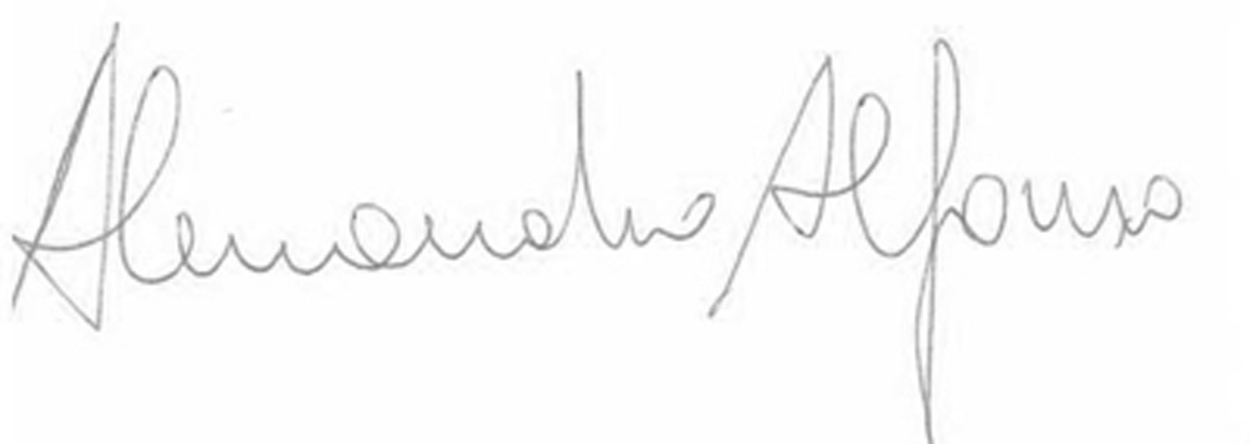 Alessandro Alfonso